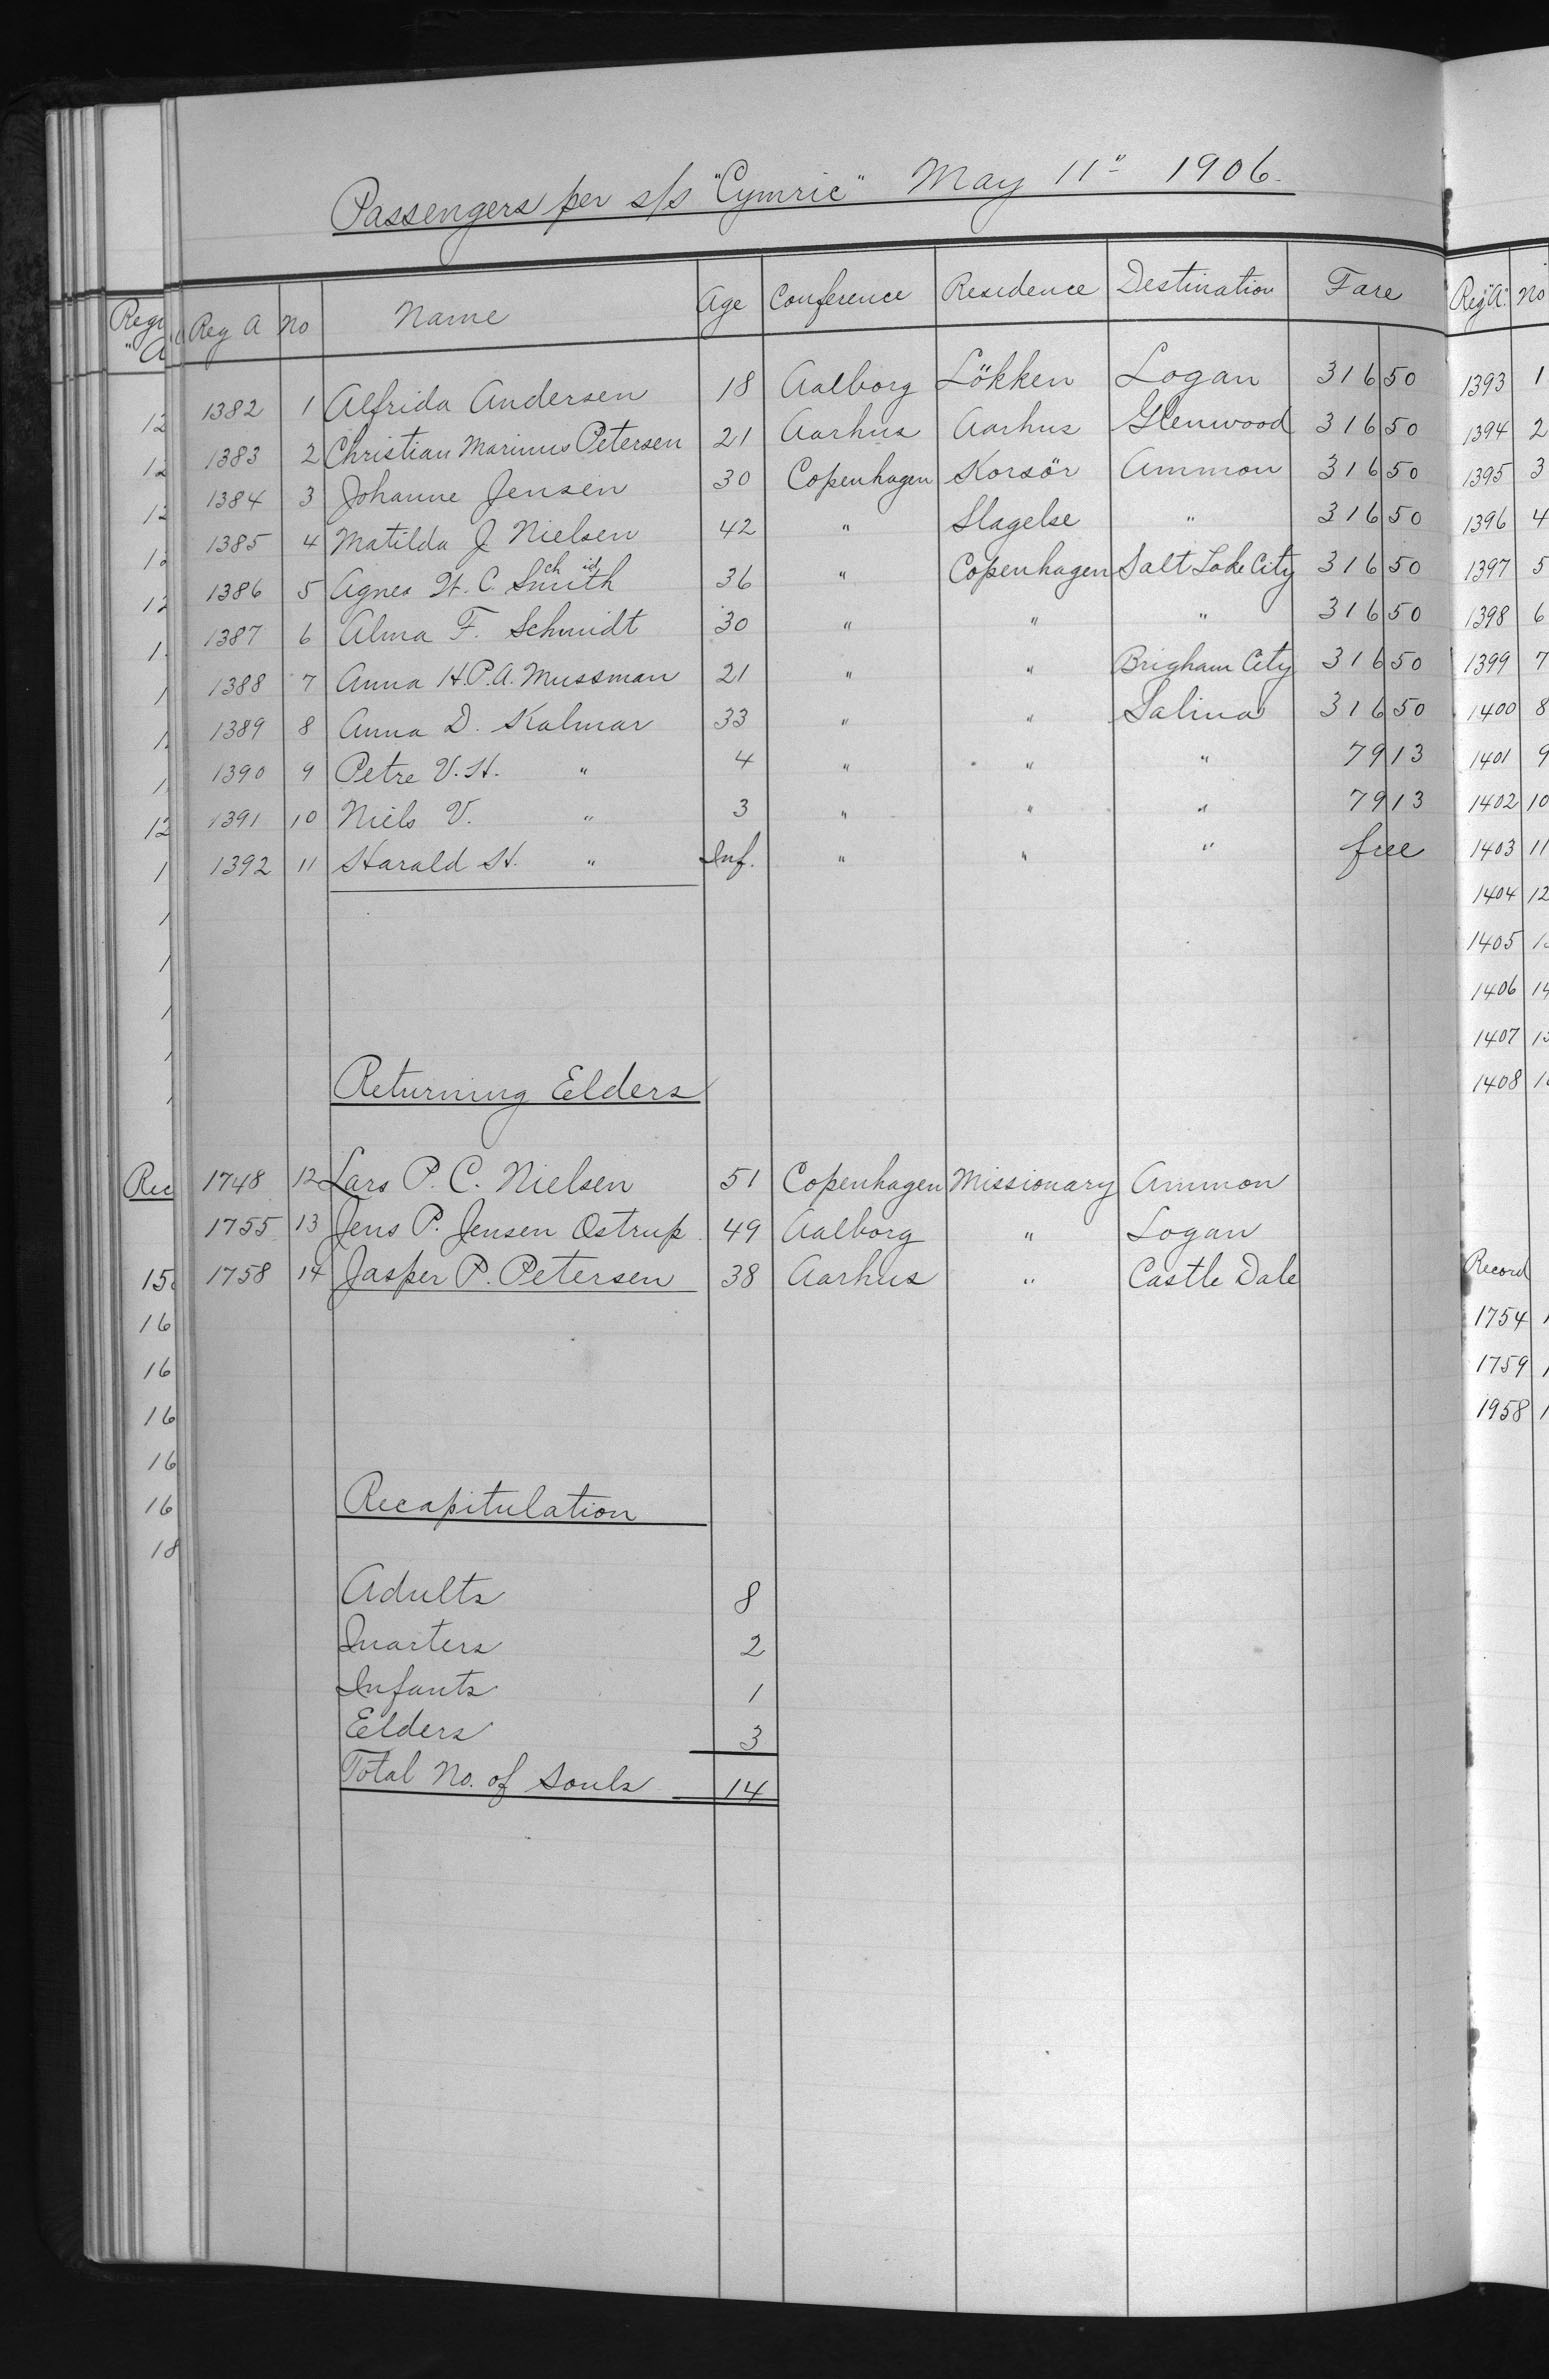 Passengers per s/s "Cymric" May 11" 1906.
Reg A No Name Age Conference Residence Destination Fare
1382 1 Alfrida Andersen 18 Aalborg Lökken Logan 316 50
1383 2 Christian Marinus Petersen 21 Aarhus Aarhus Glenwood 316 50
1384 3 Johanne Jensen 30 Copenhagen Korsör Ammon 316 50
1385 4 Matilda J Nielsen 42 " Slagelse " 316 50
1386 5 Agnes H. C. Smith ch id 36 " Copenhagen Salt Lake City 316 50
1387 6 Alma F. Schmidt 30 " " " 316 50
1388 7 Anna H.P.A. Mussman 21 " " Brigham City 316 50
1389 8 Anna D. Kalmar 33 " " Salina 316 50
1390 9 Petre V. H. " 4 " " " 79 13
1391 10 Niels V. " 3 " " " 79 13
1392 11 Harald H. " Inf. " " " free
Returning Elders
1748 12 Lars P. C. Nielsen 51 Copenhagen Missionary Ammon
1755 13 Jens P. Jensen Ostrup 49 Aalborg " Logan
1758 14 Jasper P. Petersen 38 Aarhus " Castle Dale
Recapitulation
Adults 8
Quarters 2
Infants 1
Elders 3
Total No. of Souls 14
Reg "A" No
1393 1
1394 2
1395 3
1396 4
1397 5
1398 6
1399 7
1400 8
1401 9
1402 10
1403 11
1404 12
1405
1406 14
1407
1408
Record
1754
1759
1958